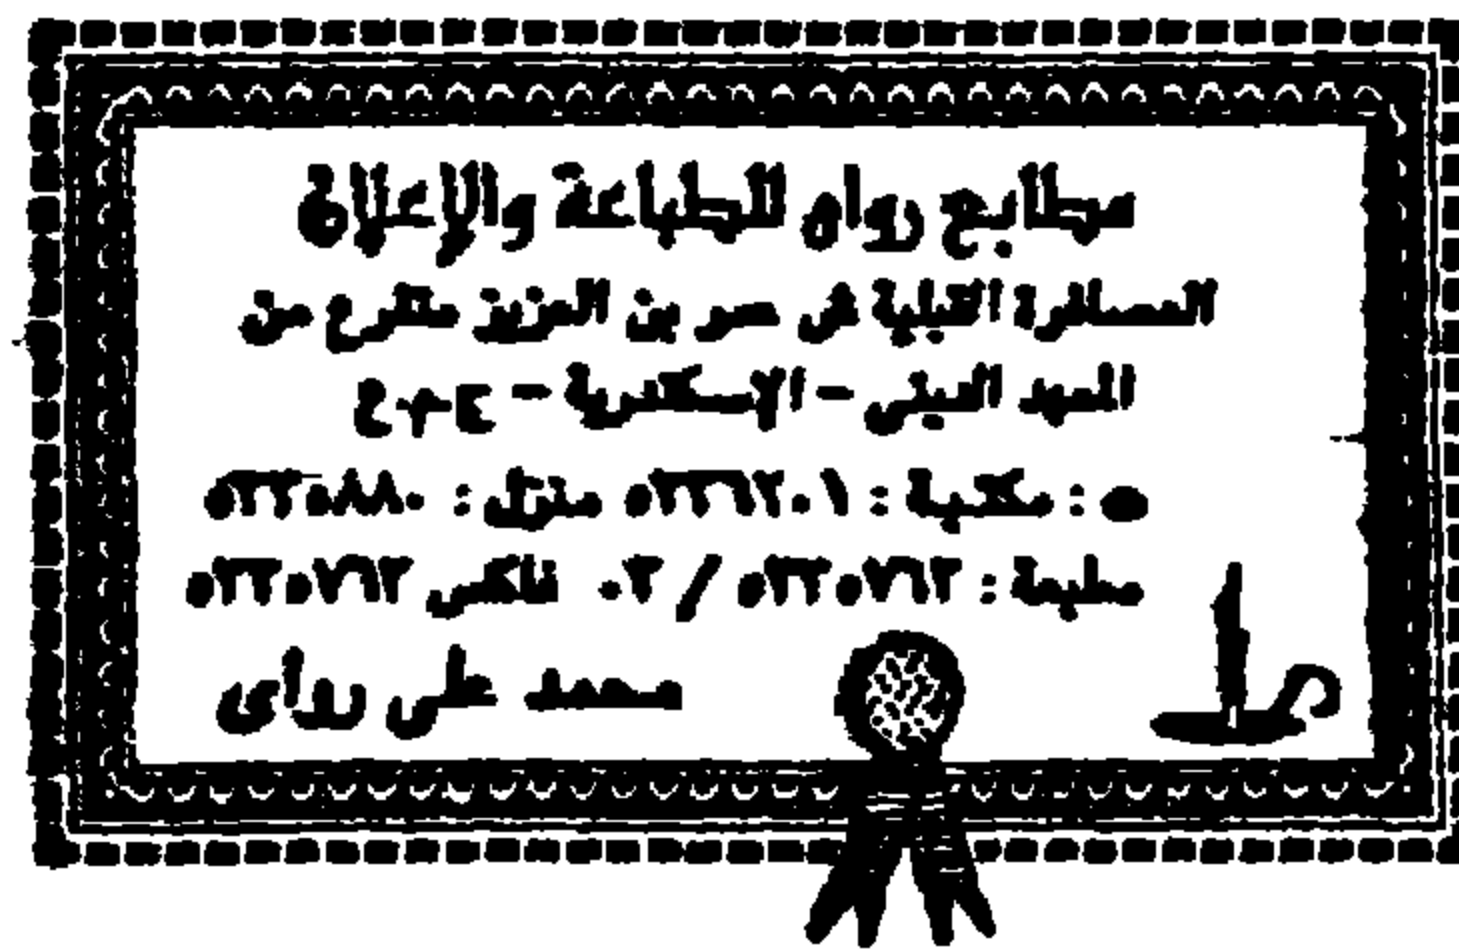 مطابع رواى للطباعة والإعلان
العصافرة القبلية ش عمر بن العزيز متفرع من
المعهد الدينى - الإسكندرية - ج.م.ع
مكتبة : ٥٣٢٦٢٠١ منزل : ٥٣٢٥٨٨٠
مطبعة : ٥٣٢٥٧٦٣ / ٠٣ فاكس ٥٣٢٥٧٦٣
محمد على رواى